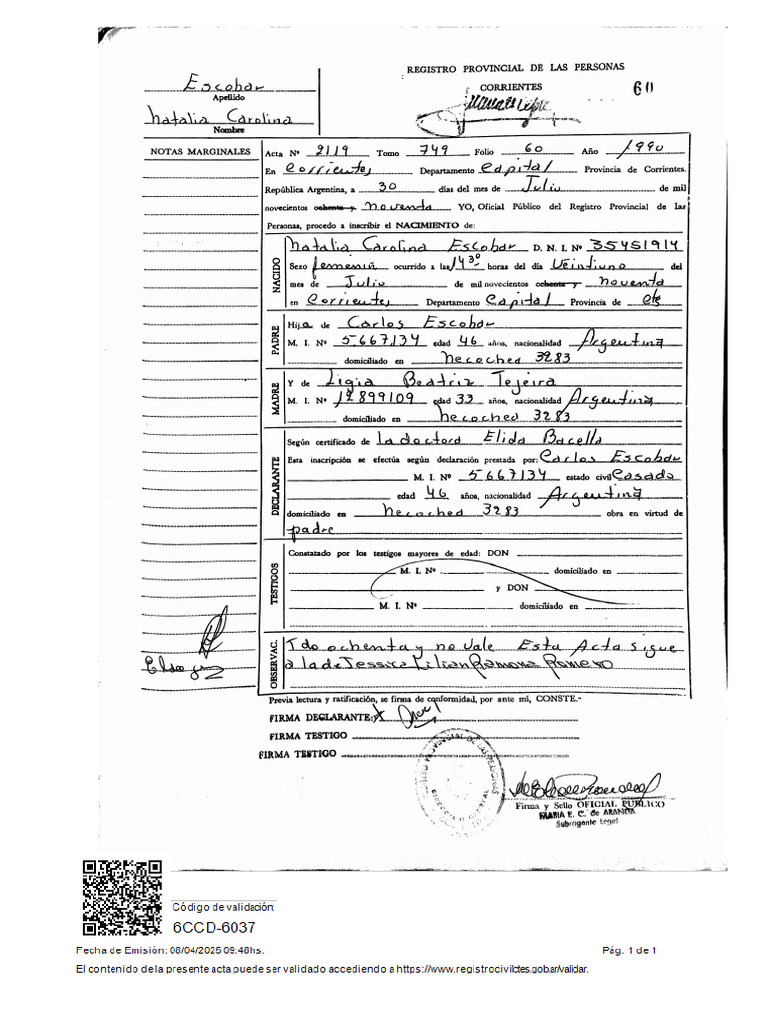 REGISTRO PROVINCIAL DE LAS PERSONAS
CORRIENTES
60
Escobar
Apellido
Natalia Carolina
Nombre
NOTAS MARGINALES
Acta Nº 2119 Tomo 749 Folio 60 Año 1990
En Corrientes Departamento Capital Provincia de Corrientes.
República Argentina, a 30 días del mes de Julio de mil
novecientos ochenta y noventa YO, Oficial Público del Registro Provincial de las
Personas, procedo a inscribir el NACIMIENTO de:
NACIDO
Natalia Carolina Escobar D. N. I. Nº 35451914
Sexo femenin ocurrido a las 14 30 horas del día Veintiuno del
mes de Julio de mil novecientos ochenta y noventa
en Corrientes Departamento Capital Provincia de Ctes
PADRE
Hija de Carlos Escobar
M. I. Nº 5667134 edad 46 años, nacionalidad Argentina
domiciliado en Necochea 3283
MADRE
Y de Ligia Beatriz Tejeira
M. I. Nº 12899109 edad 33 años, nacionalidad Argentina
domiciliado en Necochea 3283
DECLARANTE
Según certificado de la doctora Elida Bacella
Esta inscripción se efectúa según declaración prestada por: Carlos Escobar
M. I. Nº 5667134 estado civil Casado
edad 46 años, nacionalidad Argentina
domiciliado en Necochea 3283 obra en virtud de
padre
TESTIGOS
Constatado por los testigos mayores de edad: DON
M. I. Nº domiciliado en
y DON
M. I. Nº domiciliado en
OBSERVAC.
Tdo ochenta y no Vale Esta Acta sigue
a la de Jessica Lilian Ramona Romero
Previa lectura y ratificación, se firma de conformidad, por ante mí, CONSTE.-
FIRMA DECLARANTE: X
FIRMA TESTIGO
FIRMA TESTIGO
REGISTRO PROVINCIAL DE LAS PERSONAS
DIRECCION GENERAL
Firma y Sello OFICIAL PUBLICO
MARIA E. C. de ARANDA
Subrogante Legal
Código de validación:
6CCD-6037
Fecha de Emisión: 08/04/2025 09:48hs.
Pág. 1 de 1
El contenido de la presente acta puede ser validado accediendo a https://www.registrocivilctes.gob.ar/validar.